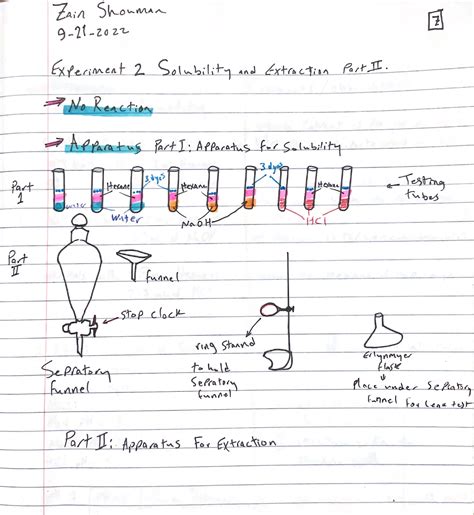 Zain Shouman
7
9-21-2022
Experiment 2 Solubility and Extraction Part II.
→ No Reaction
→ Apparatus Part I: Apparatus for Solubility
Part 1
Hexane
3 dyes
Hexane
3 dyes
Hexane
← Testing tubes
water
water
NaOH
HCl
Part II
funnel
stop clock
Sepratory funnel
ring stannd
to hold
Sepratory
funnel
Erlynmyer
flask
Place under Sepratory
funnel for leak test
Part II: Apparatus For Extraction